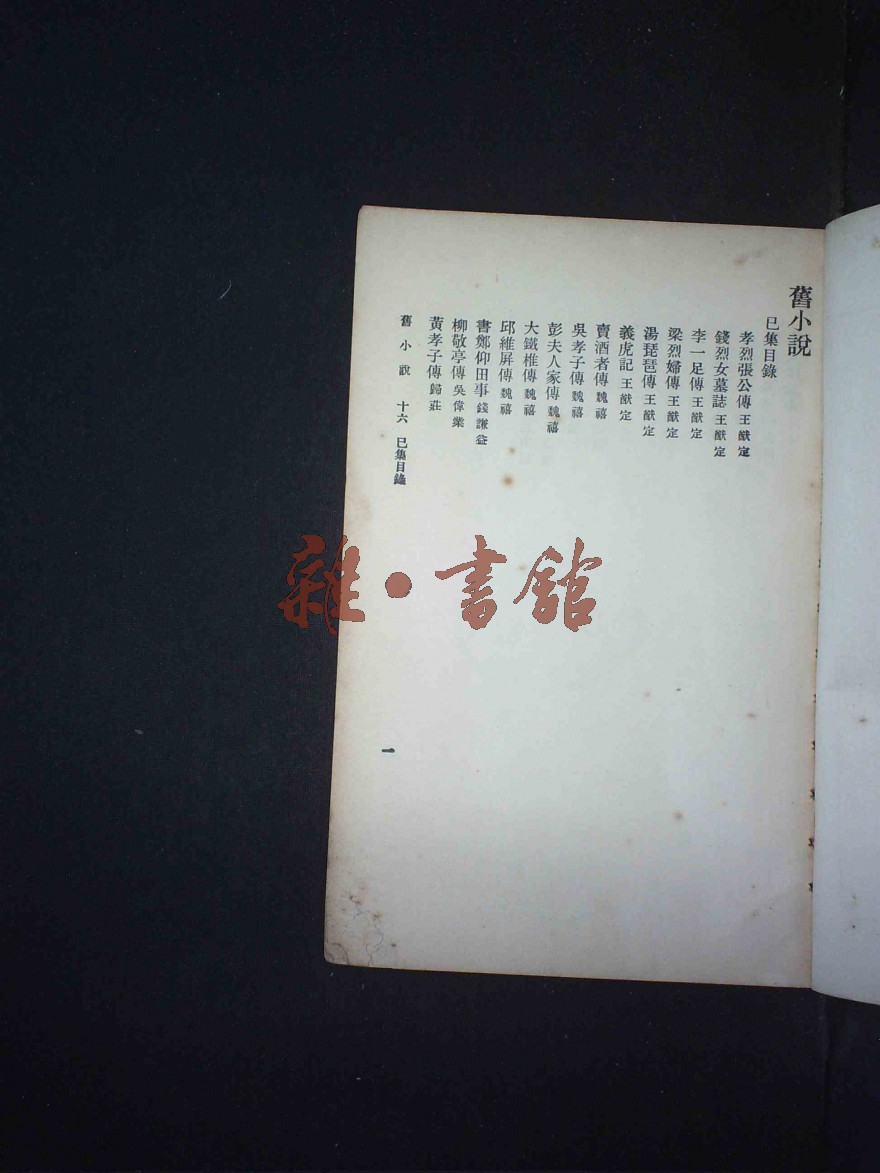 舊小說
巳集目錄
孝烈張公傳 王猷定
錢烈女墓誌 王猷定
李一足傳 王猷定
梁烈婦傳 王猷定
湯琵琶傳 王猷定
義虎記 王猷定
賣酒者傳 魏禧
吳孝子傳 魏禧
彭夫人家傳 魏禧
大鐵椎傳 魏禧
邱維屏傳 魏禧
書鄭仰田事 錢謙益
柳敬亭傳 吳偉業
黃孝子傳 歸莊
舊小說 十六 巳集目錄
一
雜·書館